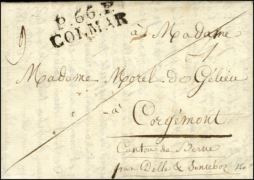 P.66.P.
COLMAR
à Madame
Madame Morel-de Gélieu
à
Corgémont
Canton de Berne
par Delle & Sonceboz